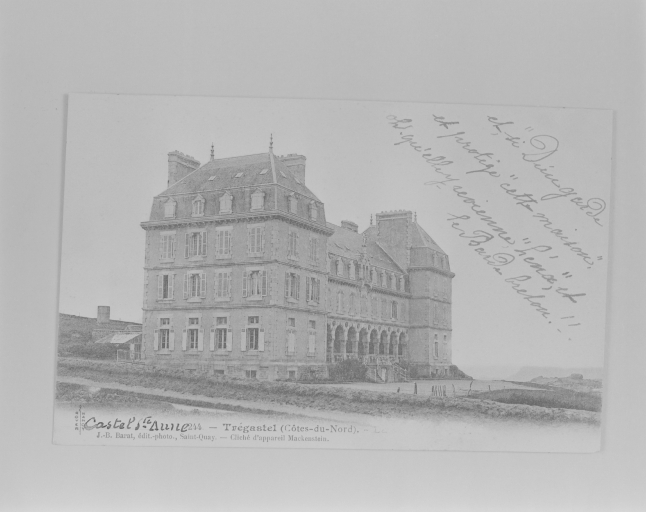 et si "Dieu garde
et protège "cette maison"
et qu'elly revienne "
le Barde breton... !!
Castel Ste Anne 244. — Trégastel (Côtes-du-Nord).
J.-B. Barat, édit.-photo., Saint-Quay. — Cliché d'appareil Mackenstein.